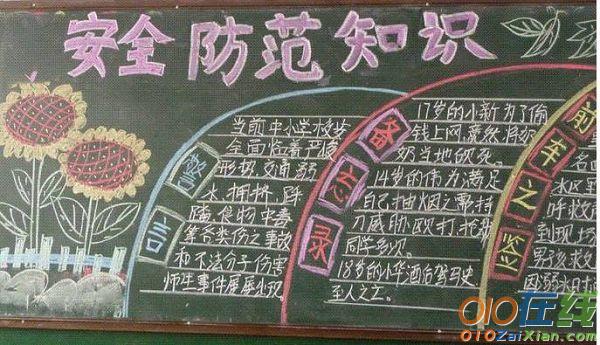 安全防范知识
警言
当前中小学校安
全面临着严峻
形势,交通、溺
水、拥挤、
食物中毒
等各类伤亡事故
和不法分子伤害
师生事件屡屡出现
备忘录
17岁的小新为了偷
钱上网竟然将奶
奶当地砍死。
14岁的伟为满足
自己抽烟之需持
刀威胁殴打抢劫
同学多次。
18岁的小华酒后驾马史
至人之亡。
前车之鉴
水区里
呼救
到现场
男孩救
因溺水
010在线
010ZaiXian.com